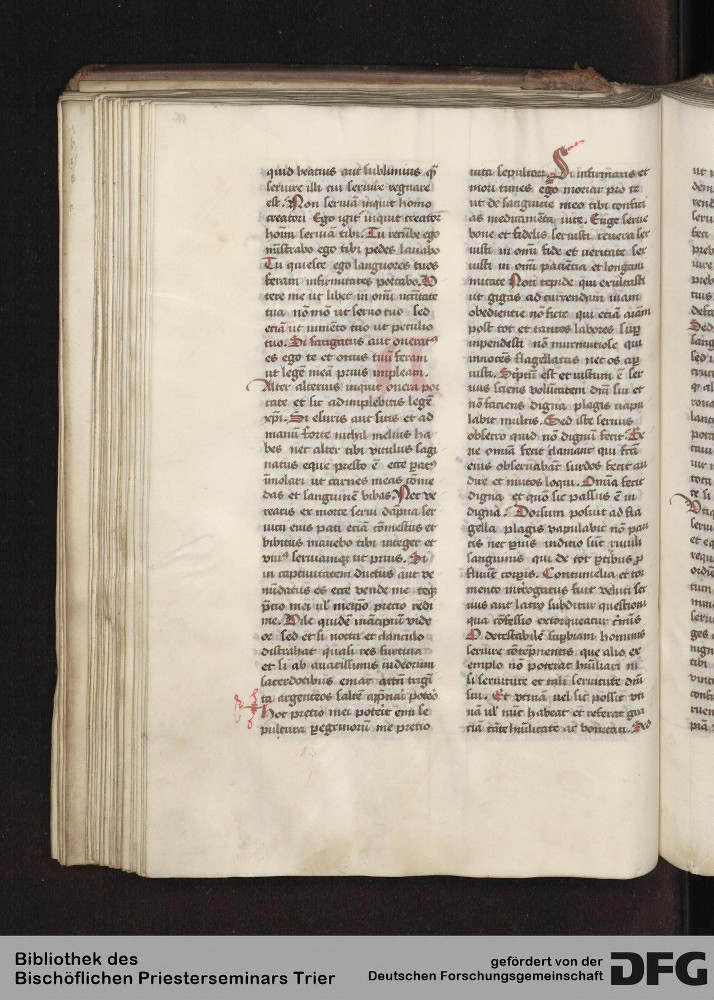 quid beatius aut sublimius q̄
seruire illi cui seruire regnare
est. Non seruiā inquit homo
creatori Ego igit̉ inquit creator
hoim̄ seruiā tibi. Tu recūbe ego
mīstrabo ego tibi pedes lauabo
Tu quiesce ego languores tuos
feram infirmitates portabo. V
tere me ut libet in om̄i nc̄citate
tua nō mō ut seruo tuo sed
eciā ut iumēto tuo ut peculio
tuo. Si fatigatus aut onerat⁹
es ego te et onus tuū feram
ut legē meā prius impleam.
Alter alterius inquit onera por
tate et sic adimplebitis legē
xp̄i. Si esuris aut sitis et ad
manū forte nichil melius ha
bes nec alter tibi vitulus sagi
natus eque presto ē ecce parat⁹
īmolari ut carnes meas cōme
das et sanguinē bibas. Nec ve
rearis ex morte serui dāpna ser
uicii eius pati eciā cōmestus et
bibitus manebo tibi integer et
viu⁹ seruiamq̄ ut prius. Si
in captiuitatem ductus aut ve
nūdatus es ecce vende me
p̄cio mei ul̄ meip̄o precio redi
me. Vile quidē
sed et si noctu et clanculo
distrahat quasi res furtiua
et si ab auarissimus iudeorum
sacerdotibus emar attn̄ trigī
ta argenteos saltē app̄ciari potero
Hoc precio mei poterit emi se
pultura peregrinorū me precio
uita sepultorū. Si infirmaris et
mori times ego moriar pro te
ut de sanguine meo tibi confici
as medicamēta uite. Euge serue
bone et fidelis seruisti reuera ser
uisti in om̄i fide et veritate ser
uisti in om̄i paciētia et longani
mitate Non tepide qui exultasti
ut gigas ad currendam uiam
obedientie nō ficte qui eciā aīam
post tot et tantos labores sup̄
inpendisti nō murmuriose qui
innocēs flagellatus nec os ap̄
uisti. Scriptū est et iustum ē ser
uus sciens volūtatem dn̄i sui et
nō faciens digna plagis uapu
labit multis. Sed iste seruus
obsecro quid nō dignū fecit. Be
ne omnia fecit clamant qui
eius obseruabāt surdos fecit au
dire et mutos loqui. Omīa fecit
digna et quō sic passus ē in
digna. Dorsum posuit ad fla
gella plagis vapulabit nō pau
cis nec p̄uis indicio sūt riuuli
sanguinis qui de tot p̄tibus p̄
fluūt corpis. Contumelia et tor
mento intrrogatus fuit veluti ser
uus aut latro subditur questioni
qua cōfessio extorqueatur cīnis
O detestabilē supbiam hominis
seruire cōtēpnentis que alio ex
emplo nō poterat hūiliari ni
si seruitute et tali seruitute dn̄i
sui. Et vtinā vel sic possit vti
nā ul̄ nūc habeat et referat gra
ciā tāte hūilitate ac bonitati. Sed
Bibliothek des
Bischöflichen Priesterseminars Trier
gefördert von der
Deutschen Forschungsgemeinschaft
DFG